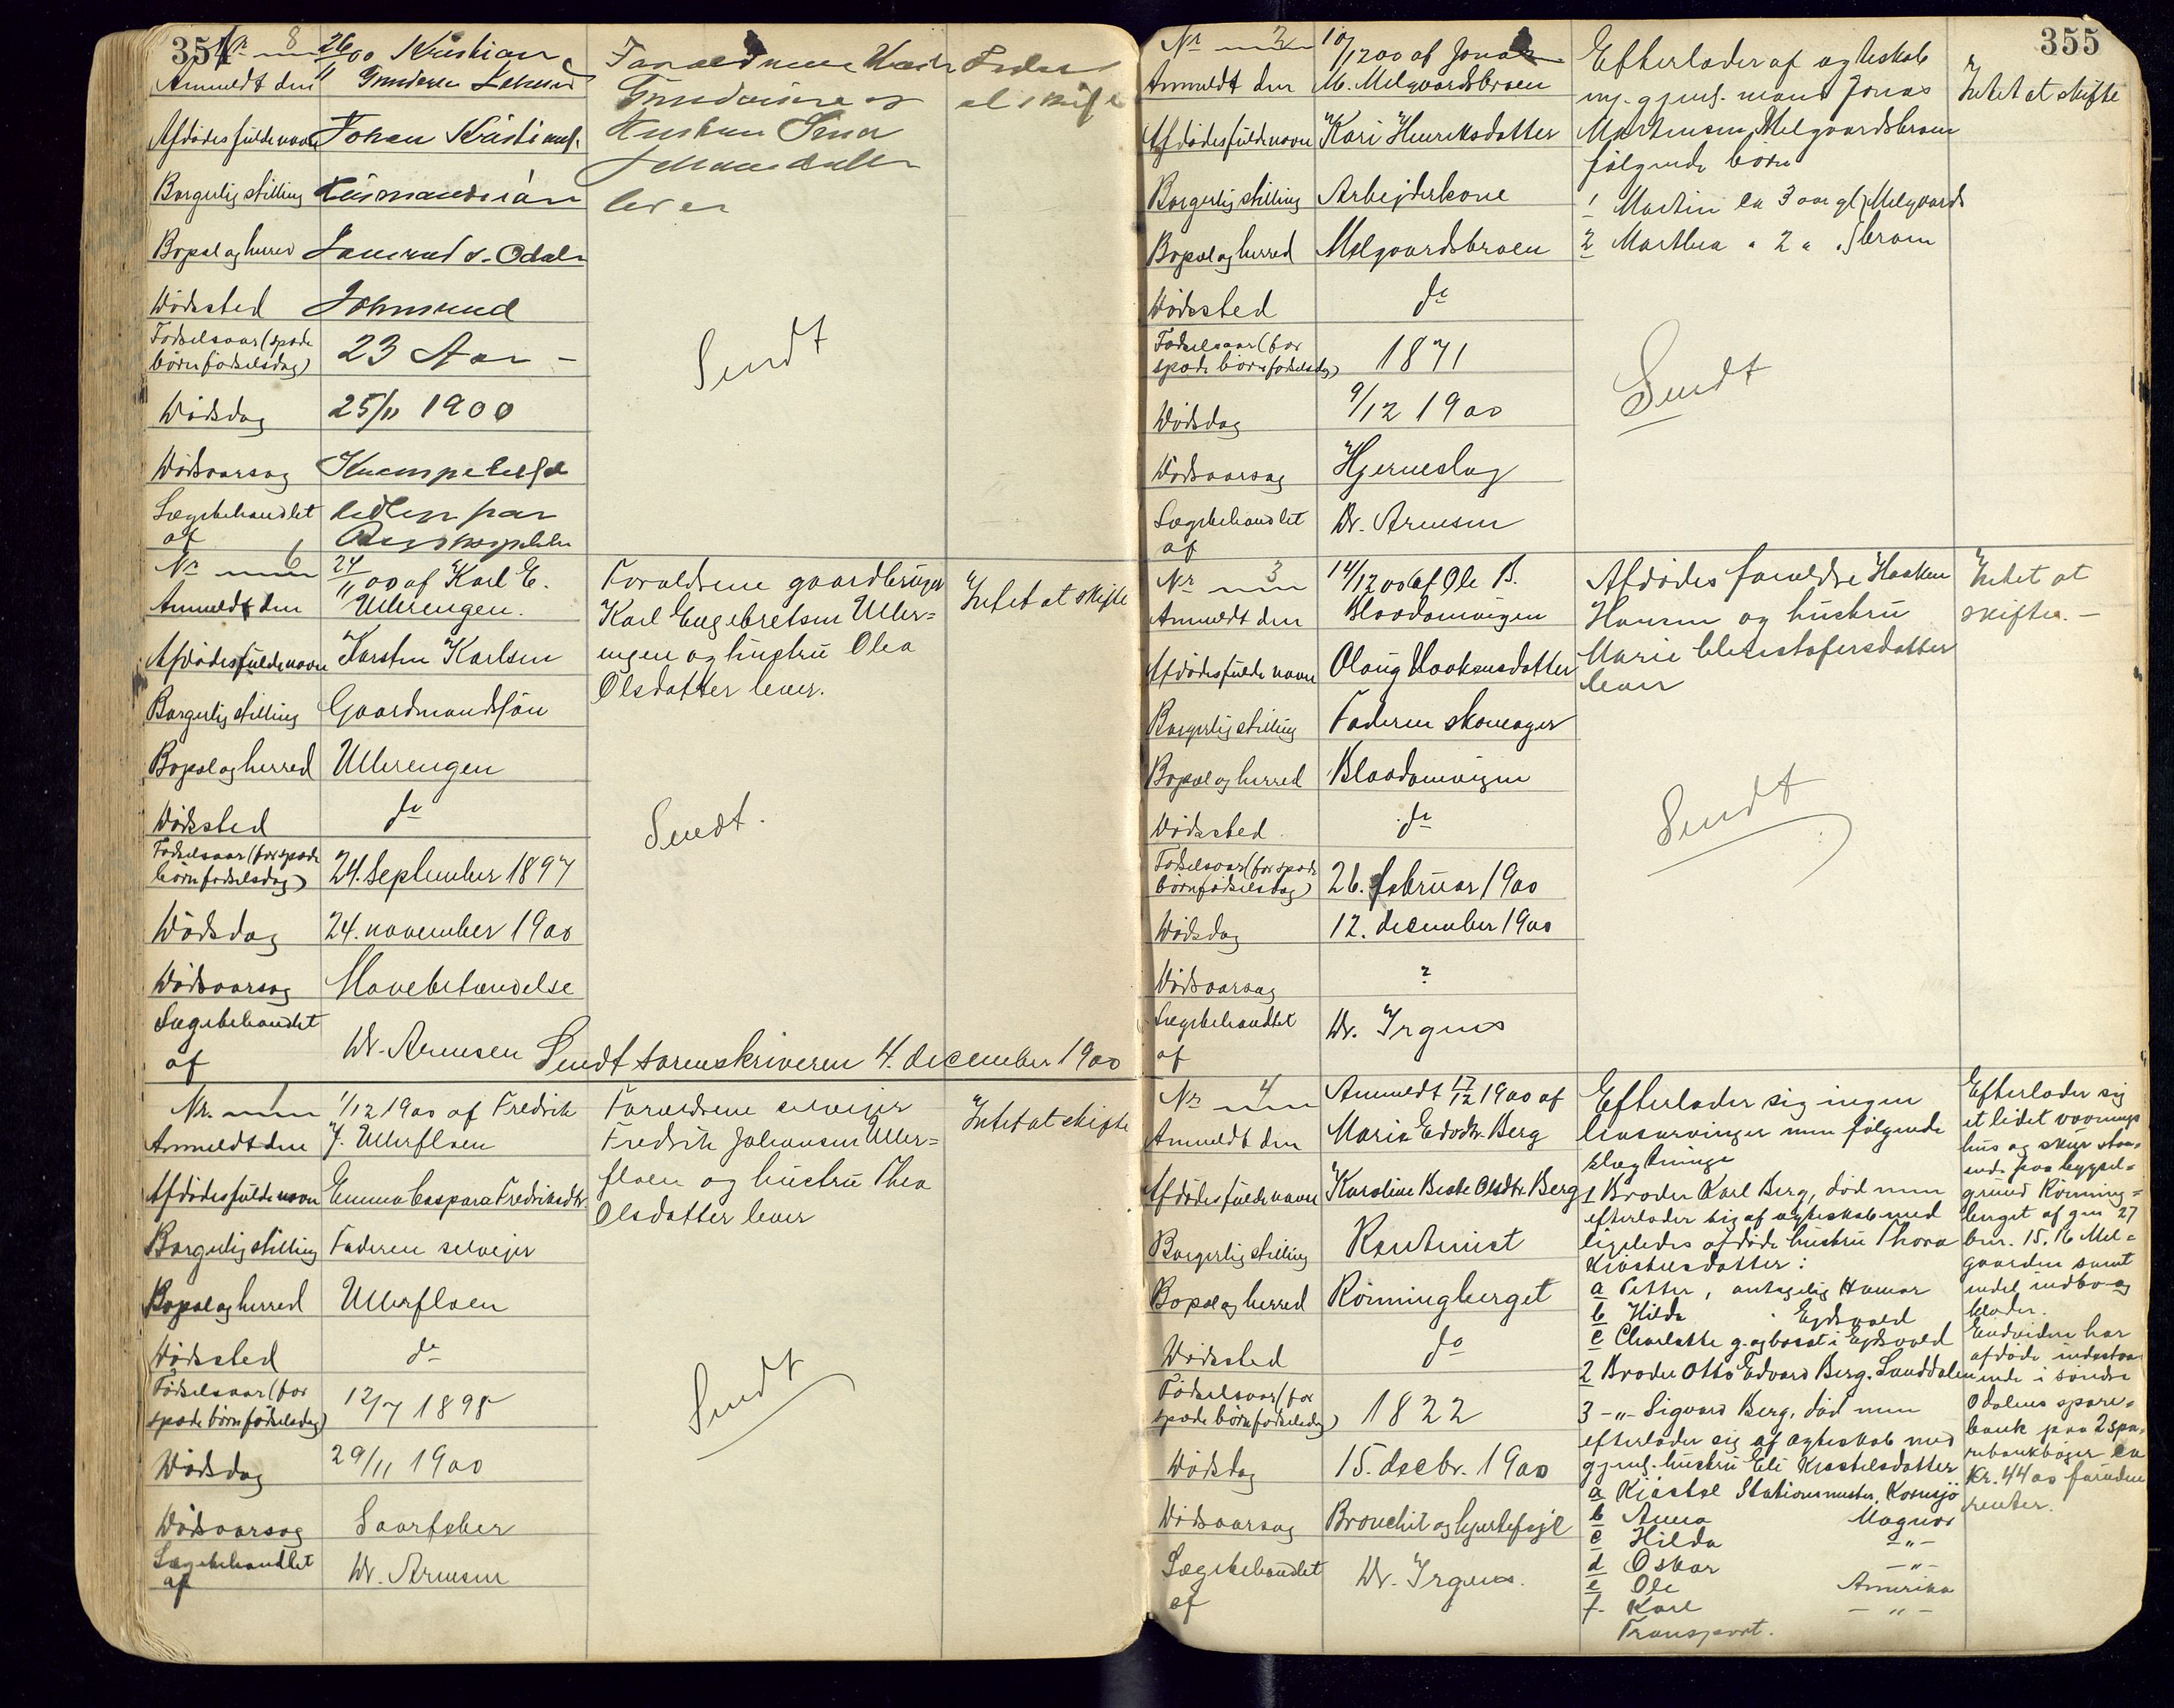 354
Nr 8
26/11 00 Kristian
Anmeldt den
Afdødes fulde navn Johan Kristians.
Borgerlig stilling Husmandssøn
Bopæl og herred s. Odalen
Dødssted
Fødselsaar (spæde
børn fødselsdag) 23 Aar -
Dødsdag 25/11 1900
Dødsaarsag
Lægebehandlet
af
Forældrene
Hustru
lever
Sendt
Nr 6 24/11 00 af Karl E.
Anmeldt den Ullerengen.
Afdødes fulde navn Karsten Karlsen
Borgerlig stilling Gaardmandssøn
Bopæl og herred Ullerengen
Dødssted do
Fødselsaar (for spæde
børn fødselsdag) 24. September 1897
Dødsdag 24. november 1900
Dødsaarsag Mavebetændelse
Lægebehandlet
af Dr. Arnesen
Forældrene gaardbruger
Karl Engebretsen Uller=
engen og hustru Olea
Olsdatter lever.
Intet at skifte
Sendt.
Sendt sorenskriveren 4. december 1900
Nr. 1 1/12 1900 af Fredrik
Anmeldt den J. Ullerfloen
Afdødes fulde navn Emma Caspara Fredriksdtr.
Borgerlig stilling Faderen selveier
Bopæl og herred Ullerfloen
Dødssted do
Fødselsaar (for
spæde børn fødselsdag) 12/7 1898
Dødsdag 29/11 1900
Dødsaarsag
Lægebehandlet
af Dr. Arnesen
Forældrene selveier
Fredrik Johansen Uller=
floen og hustru Thea
Olsdatter lever
Intet at skifte
Sendt
355
Nr 2 10/12 00 af Jonas
Anmeldt den M. Melgaardsbraaen
Afdødes fulde navn Kari Henriksdatter
Borgerlig stilling Arbeiderkone
Bopæl og herred Melgaardsbraaen
Dødssted do
Fødselsaar (for
spæde børn fødselsdag) 1871
Dødsdag 9/12 1900
Dødsaarsag Hjerneslag
Lægebehandlet Dr. Arnesen
af
Efterlader af ægteskab
m. gjenl. mand Jonas
Martinsen Melgaardsbraaen
følgende børn
1 Martin ca 3 aar gl } Melgaards
2 Marthea " 2 " " } braaen
Intet at skifte
Sendt
Nr 3 14/12 00 af Ole B.
Anmeldt den
Afdødes fulde navn Olaug Haakensdatter
Borgerlig stilling Faderen skomager
Bopæl og herred
Dødssted do
Fødselsaar (for spæde
børn fødselsdag) 26. februar 1900
Dødsdag 12. december 1900
Dødsaarsag ?
Lægebehandlet Dr. Irgens
af
Afdødes forældre Haaken
Hansen og hustru
Marie Christofersdatter
lever
Intet at
skifte. -
Sendt
Nr 4 Anmeldt 17/12 1900 af
Anmeldt den Marie Edvdtr. Berg
Afdødes fulde navn Karoline Beate Olsdtr. Berg
Borgerlig stilling Rentenist
Bopæl og herred Rønningberget
Dødssted do
Fødselsaar (for
spæde børn fødselsdag) 1822
Dødsdag 15. decbr. 1900
Dødsaarsag Bronchit og hjertefeil
Lægebehandlet Dr. Irgens.
af
Efterlader sig ingen
livsarvinger men følgende
slægtninge
1 Broder Karl Berg, død men
efterlader sig af ægteskab med
ligeledes afdøde hustru Thora
Kjøstelsdatter:
a Petter, antagelig Hamar
b Hilda " Eidsvold
c Charlotte g. og bosat i Eidsvold
2 Broder Otto Edvard Berg. Sanddalen
3 -"- Sigvard Berg, død men
efterlader sig af ægteskab med
gjenl. hustru Eli Kjøstelsdatter
a Kjøstel Stationsmester,
b Anna Magnor
c Hilda -"-
d Oskar -"-
e Ole Amerika
f. Karl -"-
Transport.
Efterlader sig
et lidet vaanings
hus og skur staa-
ende paa bygsel-
grund Rønning=
berget af gnr 27
bnr. 15.16 Mel=
gaarden samt
endel indbo og
klæder.
Endvidere har
afdøde indestaa
ende i søndre
Odalens spare-
bank paa 2 spa-
rebankbøger ca
Kr. 4400 foruden
renter.